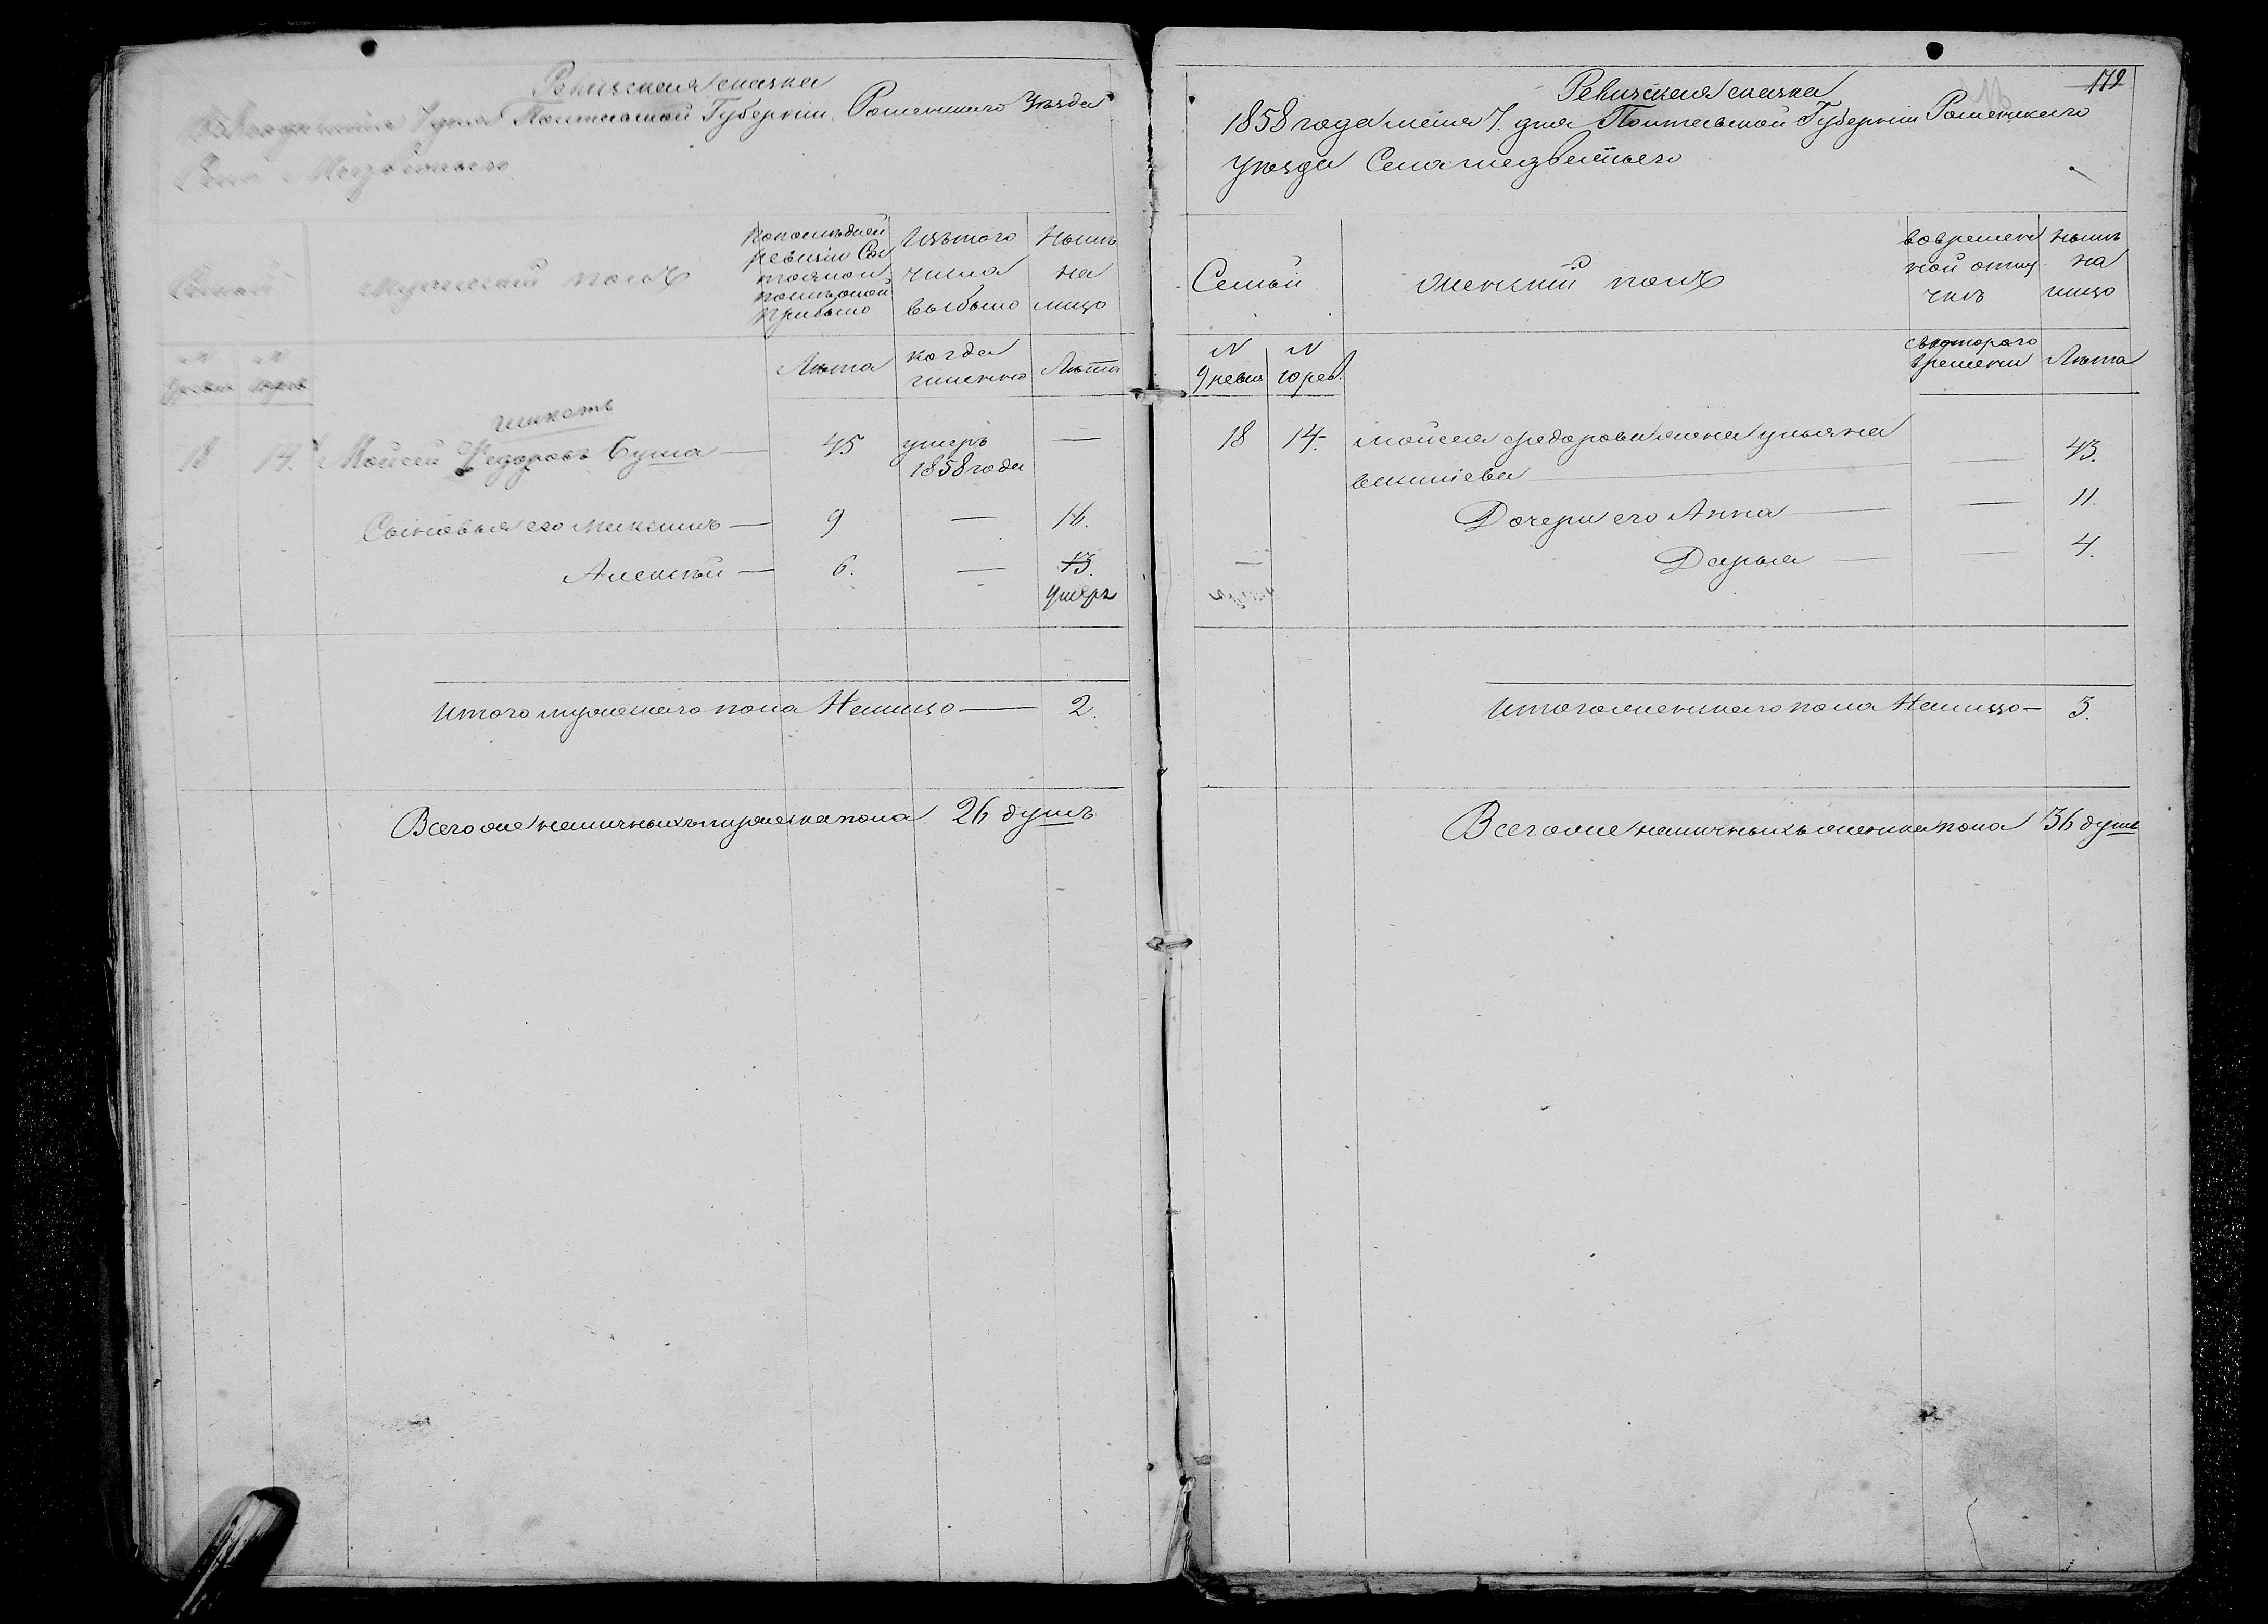 Ревизская сказка
Полтавской Губернии Роменскаго Уезда
Семьи
Мужеский полъ
По последней
ревизіи Сос
тояло и
после оной
прибыло
Изътого
числа
выбыло
Ныне
на
лицо
№
№
Лета
когда
именно
Лета
18
14.
Мойсей Федоровъ Буша
45
умеръ
1858 года
—
Сыновья его Максимъ —
9
—
16.
Алексей —
6.
—
13.
умеръ
Итого мужескаго пола Налицо —
2.
Всего же наличныхъ мужеска пола 26 душъ
172
Ревизская сказка
1858 года маия 7. дня Полтавской Губерніи Роменскаго
Уезда Села
Семьи
женский полъ
во времен
ной отлу
чке
ныне
на
лицо
№
9 ревиз
№
10 рев.
съ котораго
времени
Лета
18
14.
Мойсея Федорова жена ульяна
—
43.
Дочери его Анна —
—
11.
Дарья —
—
4.
Итого женскаго пола Налицо —
3.
Всего же наличныхъ женска пола 36 душъ